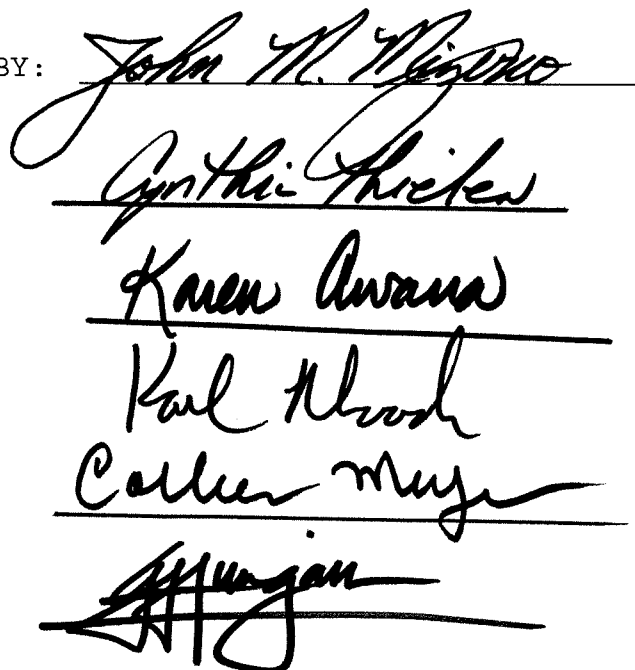 BY: John M. Mizuno
Cynthia Thielen
Karen Awana
Karl Rhoads
Colleen Meyer